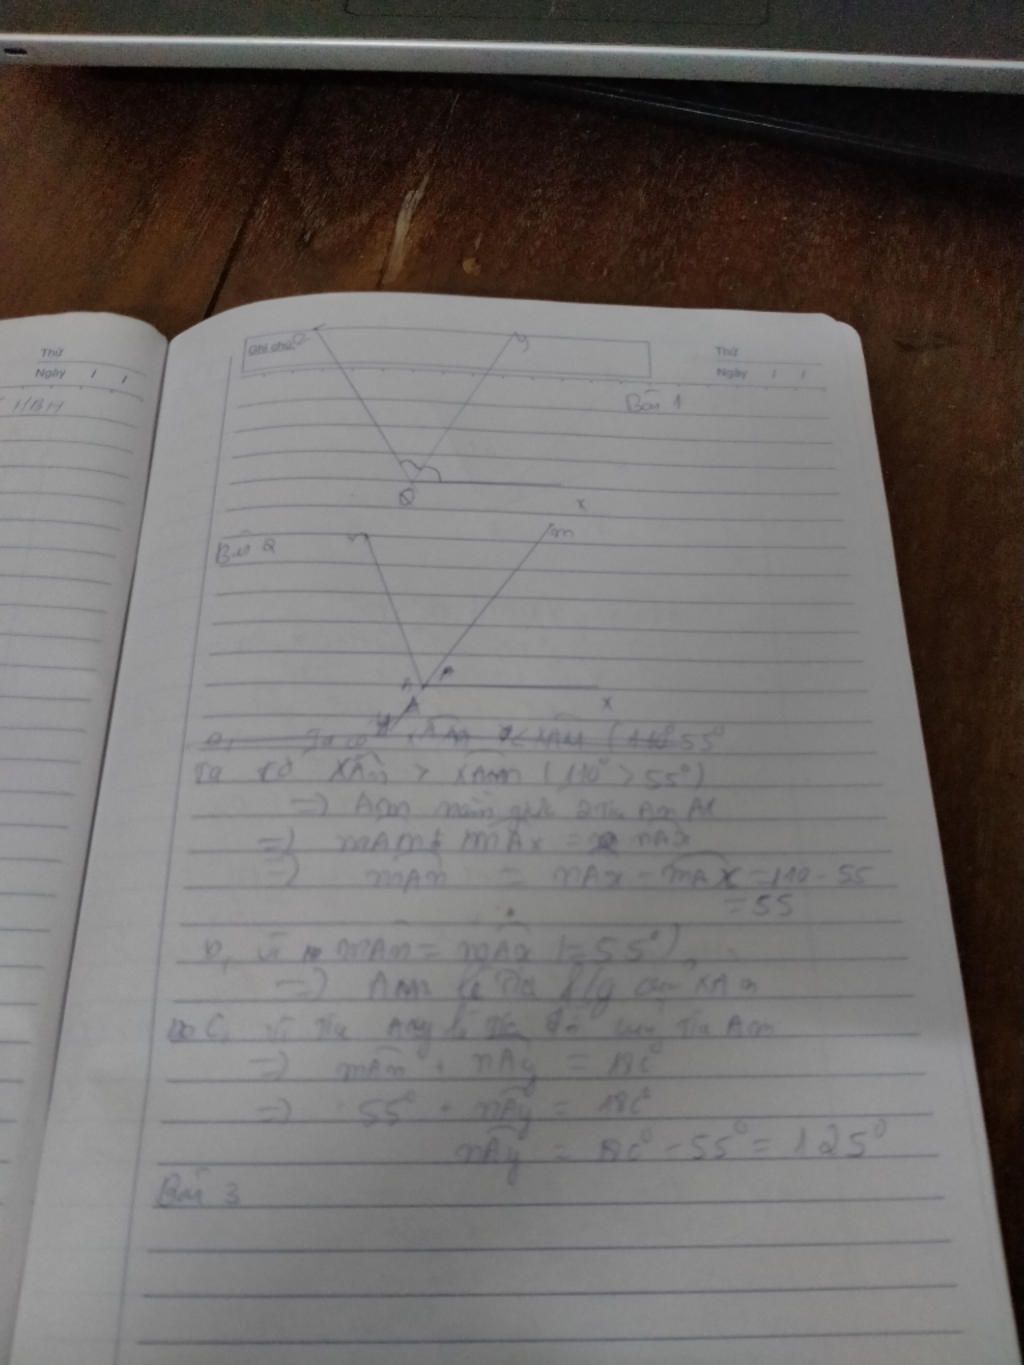 Thứ
Ngày / /
Ghi chú
Thứ
Ngày / /
y
Bài 1
Q
x
Bài 2
m
A
x
A
y
Ta có xAn > xAm (110° > 55°)
=> Am nằm giữa 2 tia An Ax
=> mAn + mAx = nAx
=> mAn = nAx - mAx = 110 - 55
= 55
b, vì mAn = mAx (= 55°)
=> Am là tia f/g của xAn
c, vì tia Ay là tia đối của tia Am
=> mAn + nAy = 180°
=> 55° + nAy = 180°
nAy = 180° - 55° = 125°
Bài 3